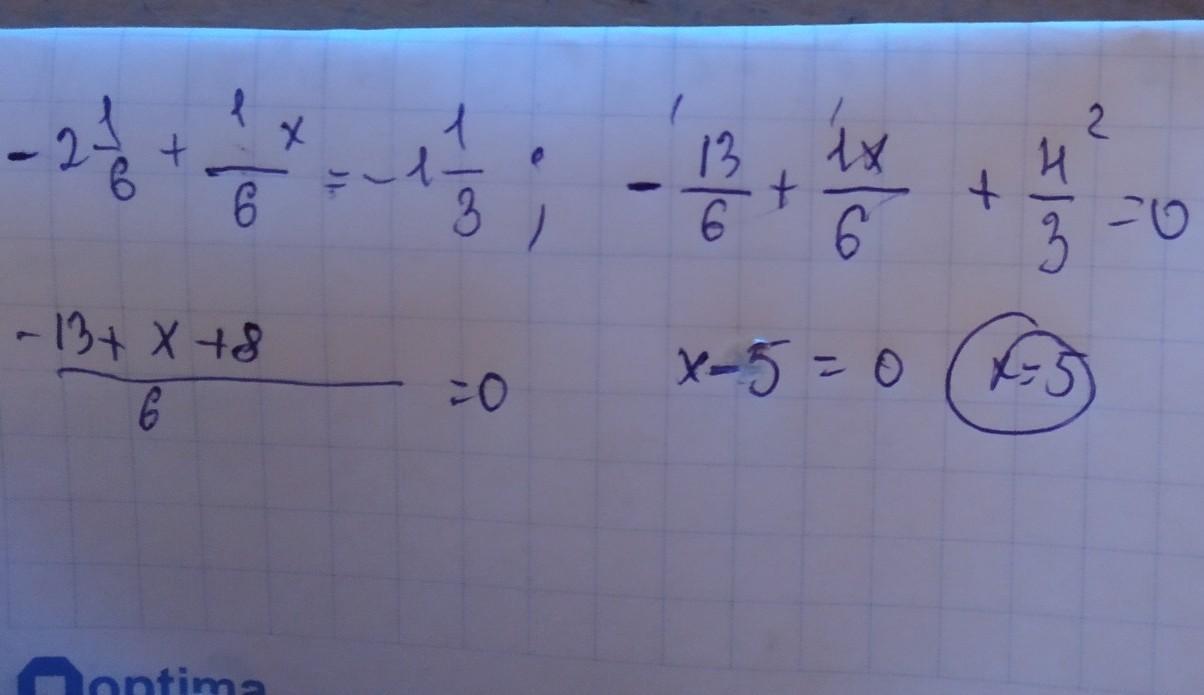 -2 1/6 + 1/6 x = -1 1/3 ; - 13/6 + 1x/6 + 4/3 = 0
' ' 2
(-13 + x + 8)/6 = 0 x - 5 = 0 x = 5
optima